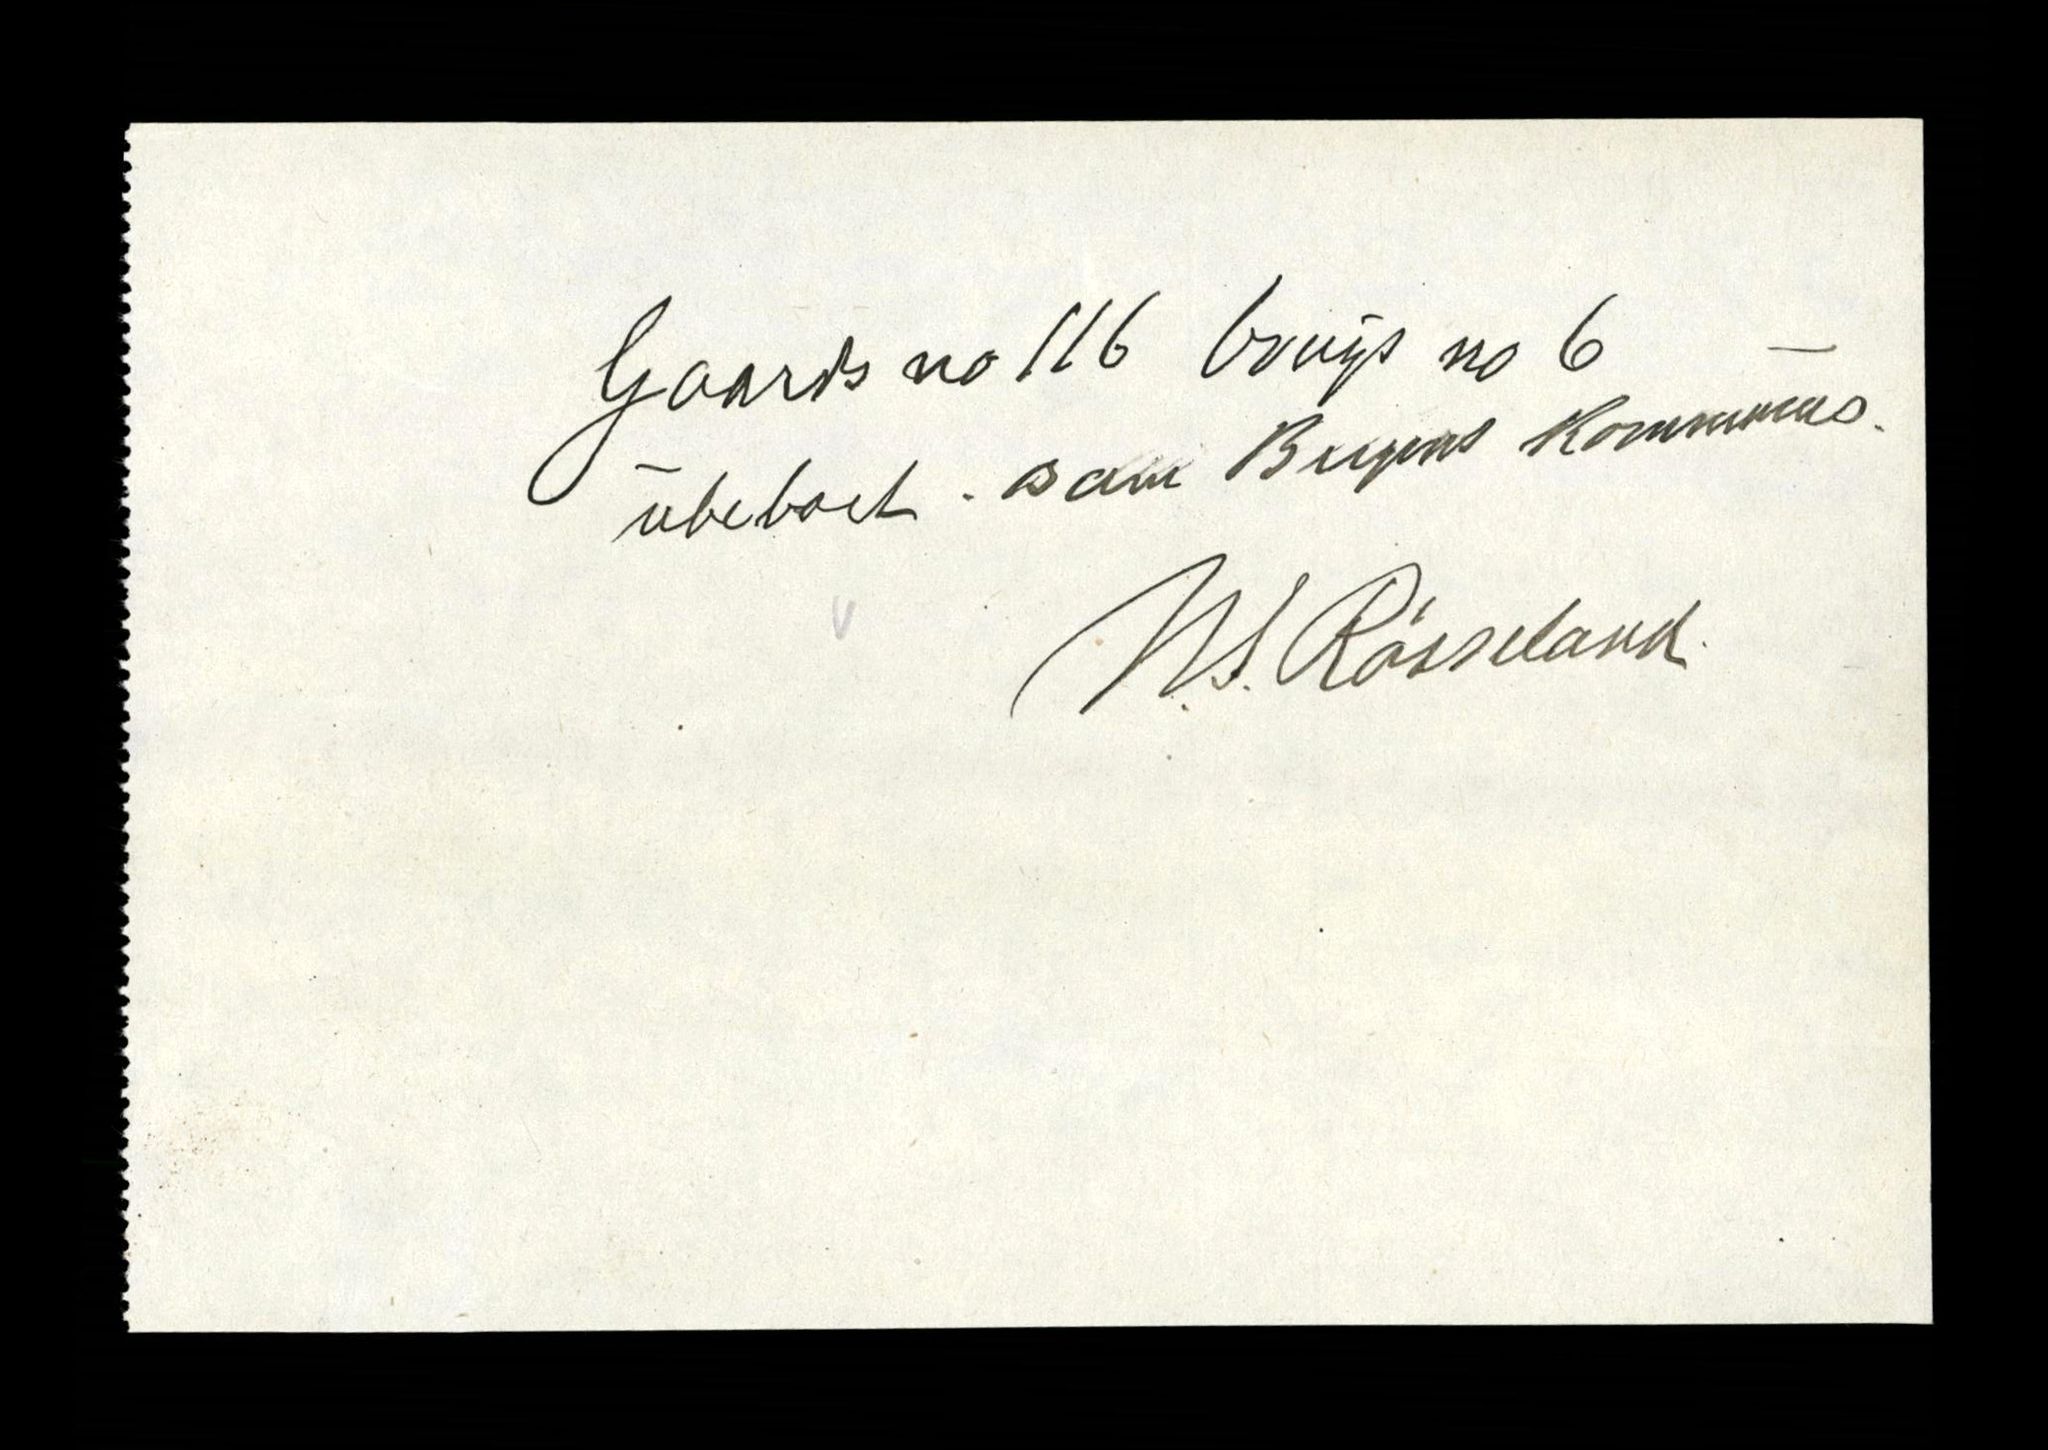 Gaards no 116 brugs no 6
ubeboet. Bergens Kommunes.
N. S. Rösseland.